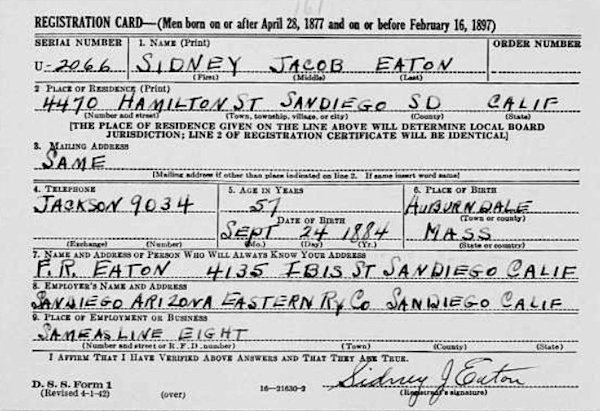 161
REGISTRATION CARD—(Men born on or after April 28, 1877 and on or before February 16, 1897)
SERIAL NUMBER 1. NAME (Print) ORDER NUMBER
U-2066 SIDNEY JACOB EATON
(First) (Middle) (Last)
2 PLACE OF RESIDENCE (Print)
4470 HAMILTON ST SAN DIEGO SD CALIF
(Number and street) (Town, township, village, or city) (County) (State)
[THE PLACE OF RESIDENCE GIVEN ON THE LINE ABOVE WILL DETERMINE LOCAL BOARD
JURISDICTION; LINE 2 OF REGISTRATION CERTIFICATE WILL BE IDENTICAL]
3. MAILING ADDRESS
SAME
[Mailing address if other than place indicated on line 2. If same insert word same]
4. TELEPHONE 5. AGE IN YEARS 6. PLACE OF BIRTH
JACKSON 9034 57 AUBURNDALE
DATE OF BIRTH (Town or county)
SEPT 24 1884 MASS
(Exchange) (Number) (Mo.) (Day) (Yr.) (State or country)
7. NAME AND ADDRESS OF PERSON WHO WILL ALWAYS KNOW YOUR ADDRESS
F. R. EATON 4135 IBIS ST SAN DIEGO CALIF
8. EMPLOYER'S NAME AND ADDRESS
SAN DIEGO ARIZONA EASTERN RY CO SAN DIEGO CALIF
9. PLACE OF EMPLOYMENT OR BUSINESS
SAME AS LINE EIGHT
(Number and street or R. F. D. number) (Town) (County) (State)
I AFFIRM THAT I HAVE VERIFIED ABOVE ANSWERS AND THAT THEY ARE TRUE.
Sidney J Eaton
D. S. S. Form 1
(Revised 4-1-42) (over) 16—21630-2 (Registrant's signature)